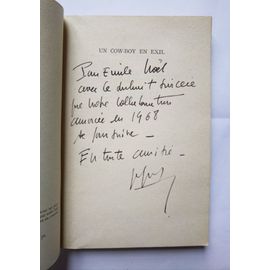 UN COW-BOY EN EXIL
Pour Emile Noël
avec le souhait sincère
que notre collaboration
amorcée en 1968
se poursuive —
En toute amitié —